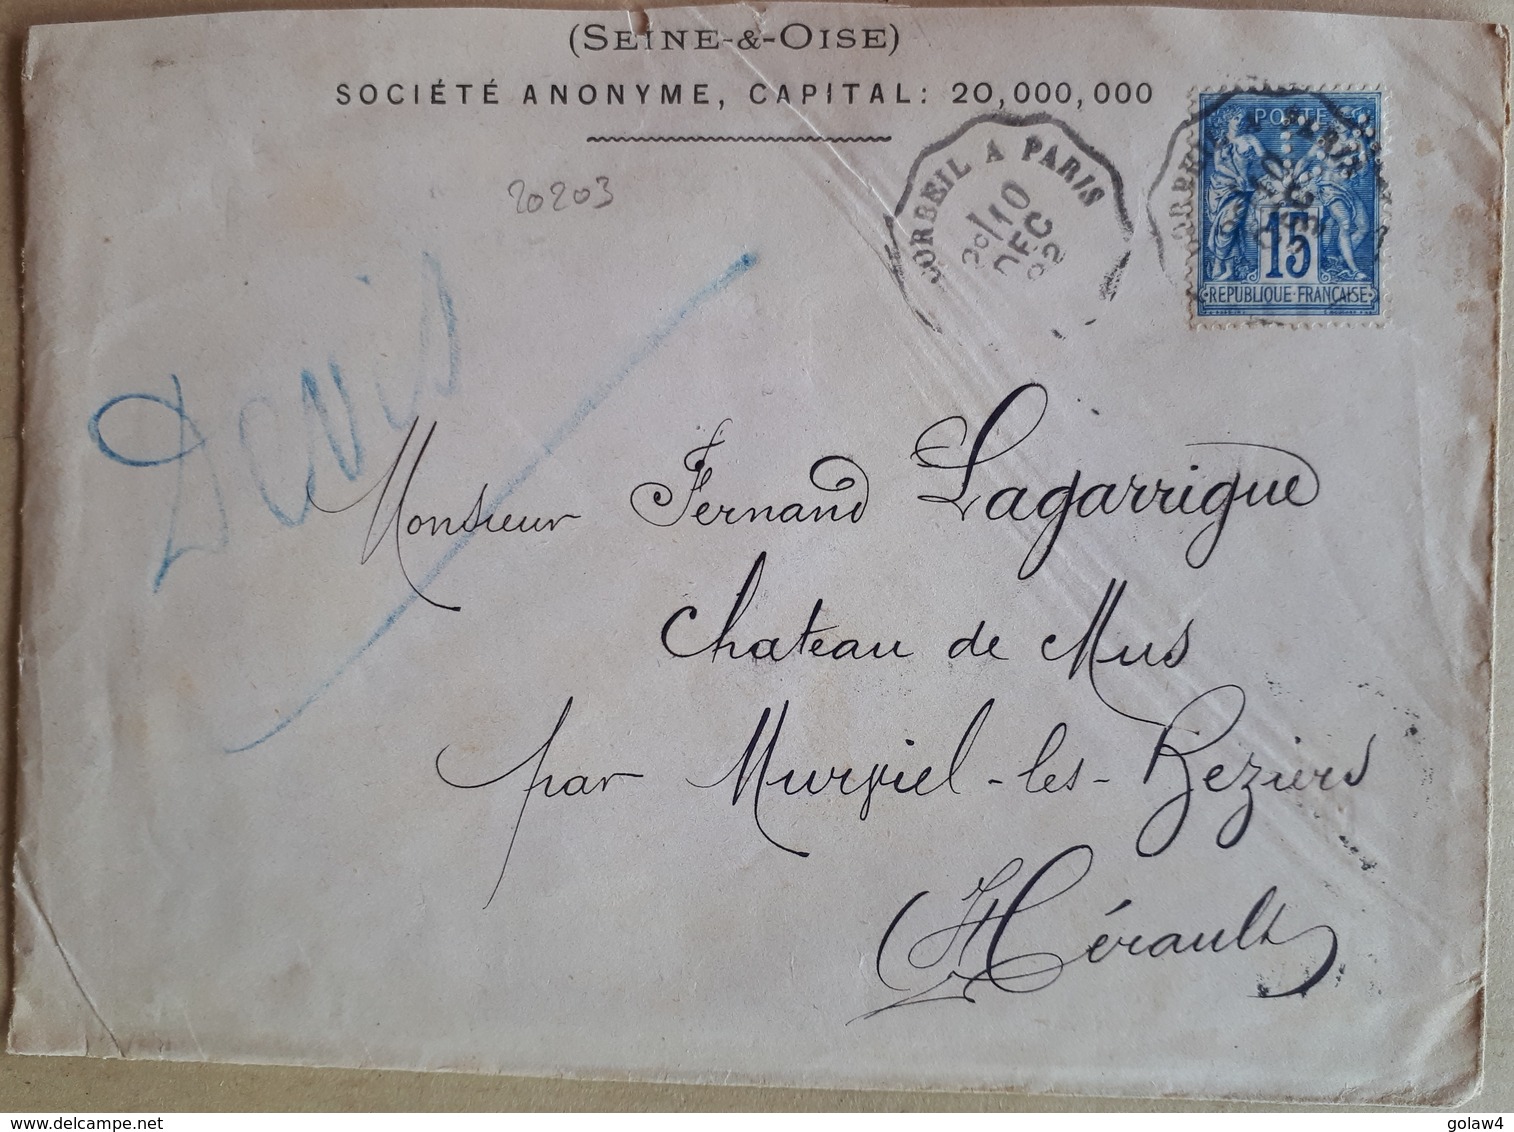 (SEINE-&-OISE)
SOCIÉTÉ ANONYME, CAPITAL: 20,000,000
20203
CORBEIL A PARIS
10
DEC
92
POSTE
15
REPUBLIQUE FRANÇAISE
Devis
Monsieur Fernand Lagarrigue
Chateau de Mus
par Murviel-les-Beziers
Hérault
www.delcampe.net
golaw4